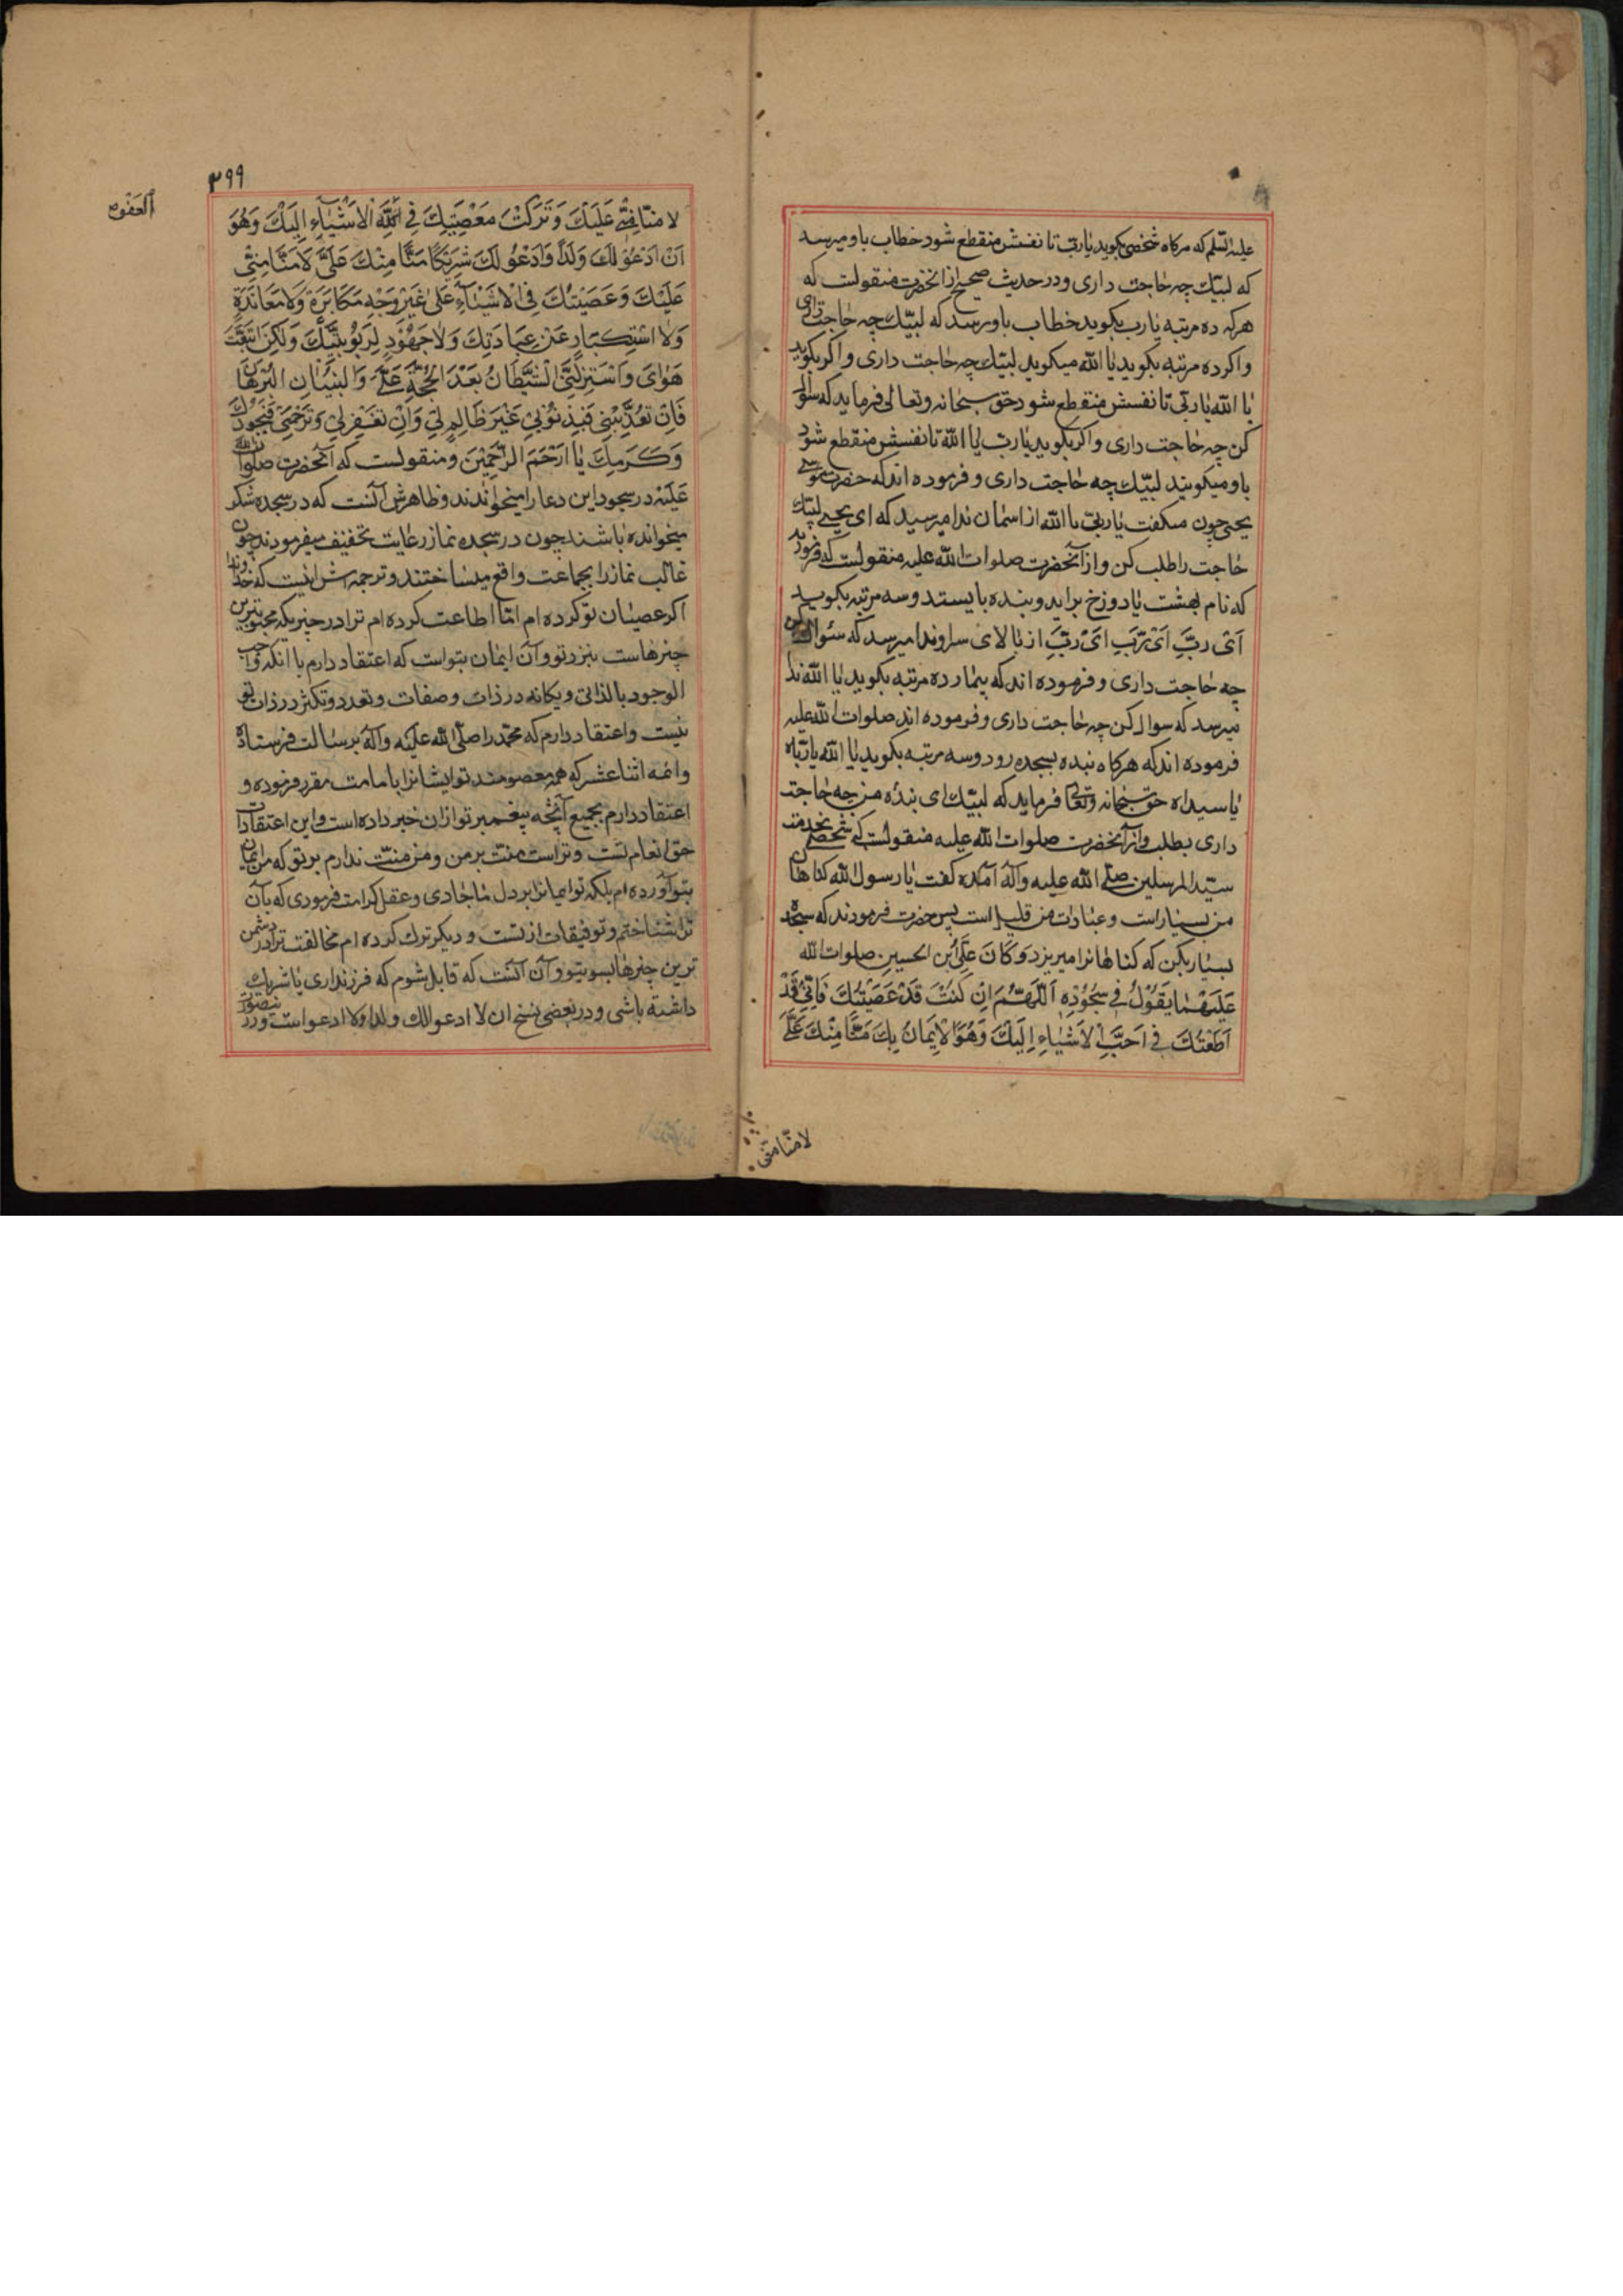 علیه السلم که هرکاه شخصی بکوید یا رب تا نفسش منقطع شود خطاب باو میرسد
که لبیك چه حاجت داری و در حدیث صحیح از انحضرت منقولست که
هرکه ده مرتبه یا رب بکوید خطاب باو رسد که لبیك چه حاجت داری
و اکر ده مرتبه بکوید یا الله میکوید لبیك چه حاجت داری و اکر بکوید
یا الله یا ربی تا نفسش منقطع شود حق سبحانه و تعالی فرماید که سوال
کن چه حاجت داری و اکر بکوید یا رب یا الله تا نفسش منقطع شود
باو میکویند لبیك چه حاجت داری و فرموده اند که حضرت
یحیی چون میکفت یا رب یا الله از اسمان ندا میرسید که ای یحیی لبیك
حاجت را طلب کن و از آنحضرت صلوات الله علیه منقولست که فرمود
که نام بهشت یا دوزخ براید و بنده بایستد و سه مرتبه بکوید
اَیْ رَبِّ اَیْ رَبِّ اَیْ رَبِّ از بالای سر او ندا میرسد که سئوال کن
چه حاجت داری و فرموده اند که بیمار ده مرتبه بکوید یا الله ندا
میرسد که سوال کن چه حاجت داری و فرموده اند صلوات الله علیه
فرموده اند که هرکاه بنده بسجده رود و سه مرتبه بکوید یا الله یا رباه
یا سیداه حق سبحانه و تعالی فرماید که لبیك ای بندۀ من چه حاجت
داری بطلب و از آنحضرت صلوات الله علیه منقولست که شخصی بخدمت
سید المرسلین صلی الله علیه وآله آمده کفت یا رسول الله کناهان
من بسیار است و عبادات من قلیل است پس حضرت فرمودند که سجده
بسیار بکن که کناهانرا میریزد وَکَانَ عَلِیُّ بْنُ الحسین صلوات الله
عَلَیْهِمَا یَقُوْلُ فِی سُجُوْدِهِ اَللّٰهُمَّ اِنْ کُنْتُ قَدْ عَصَیْتُكَ فَاِنِّی قَدْ
اَطَعْتُكَ فِی اَحَبِّ الْاَشْیَاءِ اِلَیْكَ وَهُوَ الْاِیْمَانُ بِكَ مَنًّا مِنْكَ عَلَیَّ
لا منّا منّی
۳۹۹
لا مَنًّا مِنِّی عَلَیْكَ وَتَرَکْتُ مَعْصِیَتَكَ فِی الْاَشْیَاءِ اِلَیْكَ وَهُوَ
اَنْ اَدْعُوَ لَكَ وَلَدًا وَاَدْعُوَ لَكَ شَرِیْکًا مَنًّا مِنْكَ عَلَیَّ لَا مَنًّا مِنِّی
عَلَیْكَ وَعَصَیْتُكَ فِی الْاَشْیَاءِ عَلٰی غَیْرِ وَجْهِ مُکَابَرَةٍ وَلَا مُعَانَدَةٍ
وَلَا اسْتِکْبَارٍ عَنْ عِبَادَتِكَ وَلَا جُحُوْدٍ لِرُبُوْبِیَّتِكَ وَلٰکِنِ اتَّبَعْتُ
هَوَایَ وَاسْتَزَلَّنِی الشَّیْطَانُ بَعْدَ الْحُجَّةِ عَلَیَّ وَالْبَیَانِ البرهان
فَاِنْ تُعَذِّبْنِی فَبِذُنُوْبِی غَیْرَ ظَالِمٍ لِی وَاِنْ تَغْفِرْ لِی وَتَرْحَمْنِی فَبِجُوْدِكَ
وَکَرَمِكَ یَا اَرْحَمَ الرّٰحِمِیْنَ و منقولست که آنحضرت صلوات الله
عَلَیْه در سجود این دعا را میخواندند و ظاهرش آنست که در سجده شکر
میخوانده باشند چون در سجده نماز رعایت تخفیف میفرمودند چون
غالب نماز را بجماعت واقع میساختند و ترجمه اش اینست که خداوندا
اکر عصیان تو کرده ام اما اطاعت کرده ام ترا در چیزیکه محبوبترین
چیزهاست بنزد تو و آن ایمان بتواست که اعتقاد دارم با انکه واجب
الوجود بالذاتی و یکانه در ذات و صفات و تعدد و تکثر در ذات تو
نیست و اعتقاد دارم که محمد را صلی الله علیه وآله برسالت فرستاده
و ائمه اثنا عشر که همه معصومند تو ایشانرا بامامت مقرر فرموده و
اعتقاد دارم بجمیع آنچه پیغمبر تو ازان خبر داده است و این اعتقادات
حق انعام تست و تراست منت بر من و من منت ندارم بر تو که من ایمان
بتو آورده ام بلکه تو ایمانرا بر دل ما جا دادی و عقل کرامت فرمودی که بآن
ترا شناختم و توفیقات از تست و دیکر ترك کرده ام مخالفت ترا در دشمن
ترین چیزها بسوی تو و آن آنست که قایل شوم که فرزند داری یا شریك
داشته باشی و در بعضی نسخ ان لا ادعو لك ولدا ولا ادعو است و در